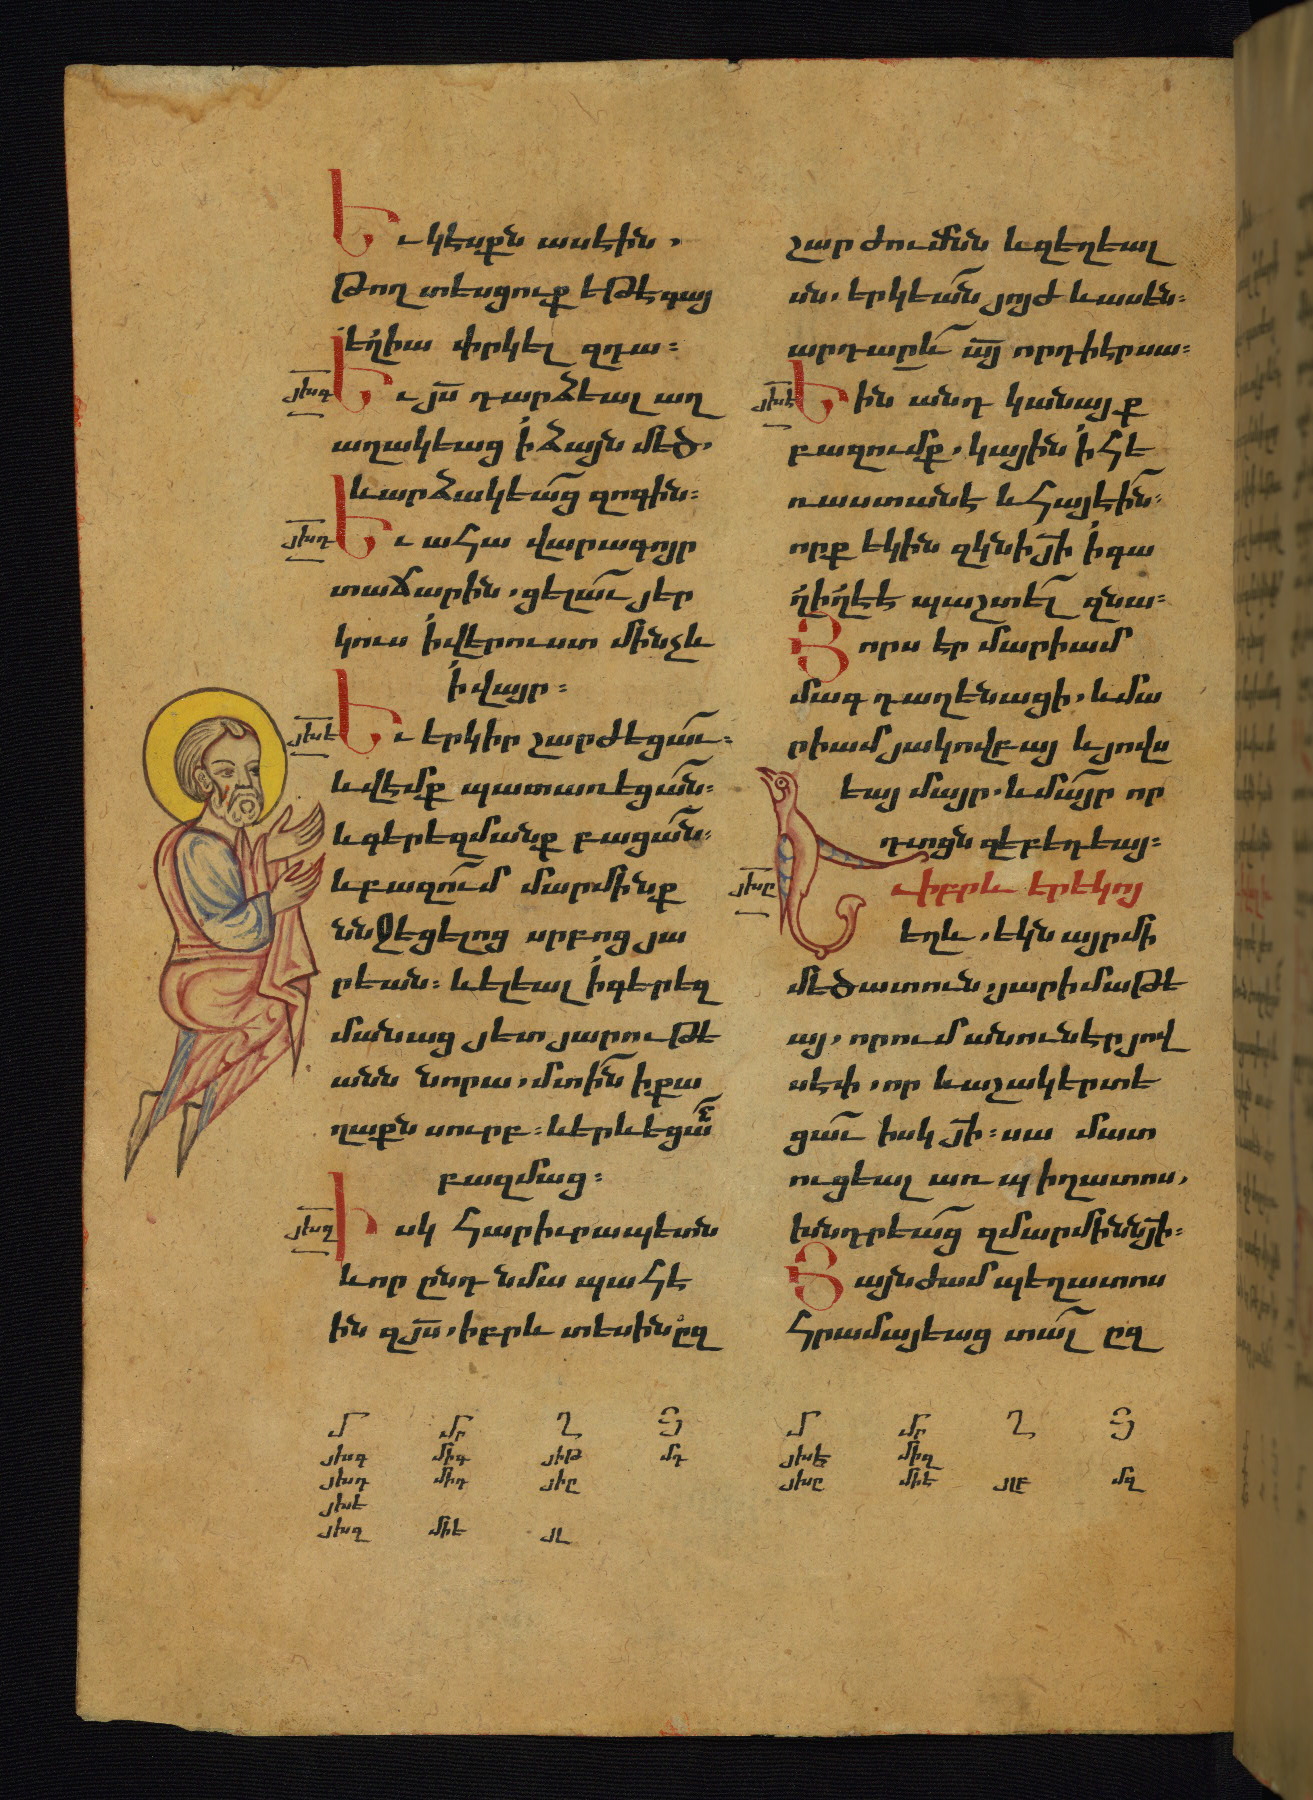 Եւ կէսքն ասէին,
Թող տեսցուք եԹէ գայ
եղիա փրկել զդա։
յխգ
Եւ յս դարձեալ աղ
աղակեաց ի ձայն մեծ,
և արձակեաց զոգին։
յխդ
Եւ ահա վարագոյր
տաճարին, ցելաւ յեր
կուս ի վերուստ մինչև
ի վայր։
յխե
Եւ երկիր շարժեցաւ։
և վէմք պատառեցան։
և գերեզմանք բացան։
և բազում մարմինք
ննջեցելոց սրբոց յա
րեան։ և ելեալ ի գերեզ
մանաց յետ յարուԹե
անն նորա, մտին ի քա
ղաքն սուրբ։ և երևեցան
բազմաց։
յխզ
Իսկ հարիւրապետն
և որ ընդ նմա պահէ
ին զյս, իբրև տեսին զ
շարժումնն և զեղեալ
սն, երկեան յոյժ և ասեն։
արդարև այ որդի էր սա։
յխէ
Եին անդ կանայք
բազումք, կային ի հե
ռաստանէ և հայէին։
որք եկին զկնի յի ի գա
ղիղեէ պաշտել զնա։
Յորս էր մարիամ
մագդաղենացի, և մա
րիամ յակովբայ և յովս
եայ մայր, և մայր որ
դւոցն զեբեդեայ։
յխը
Եւ իբրև երեկոյ
եղև, եկն այր մի
մեծատուն, յարիմաԹե
այ, որում անուն էր յով
սէփ, որ և աշակերտե
ցաւ իսկ յի։ սա մատ
ուցեալ առ պիղատոս,
խնդրեաց զմարմինն յի։
Յայնժամ պեղատոս
հրամայեաց տալ ըզ
Մ Մր Ղ Յ
յխգ միգ յիԹ մդ
յխդ միդ յիը
յխե
յխզ միե յլ
Մ Մր Ղ Յ
յխէ միզ
յխը միէ յլբ մզ